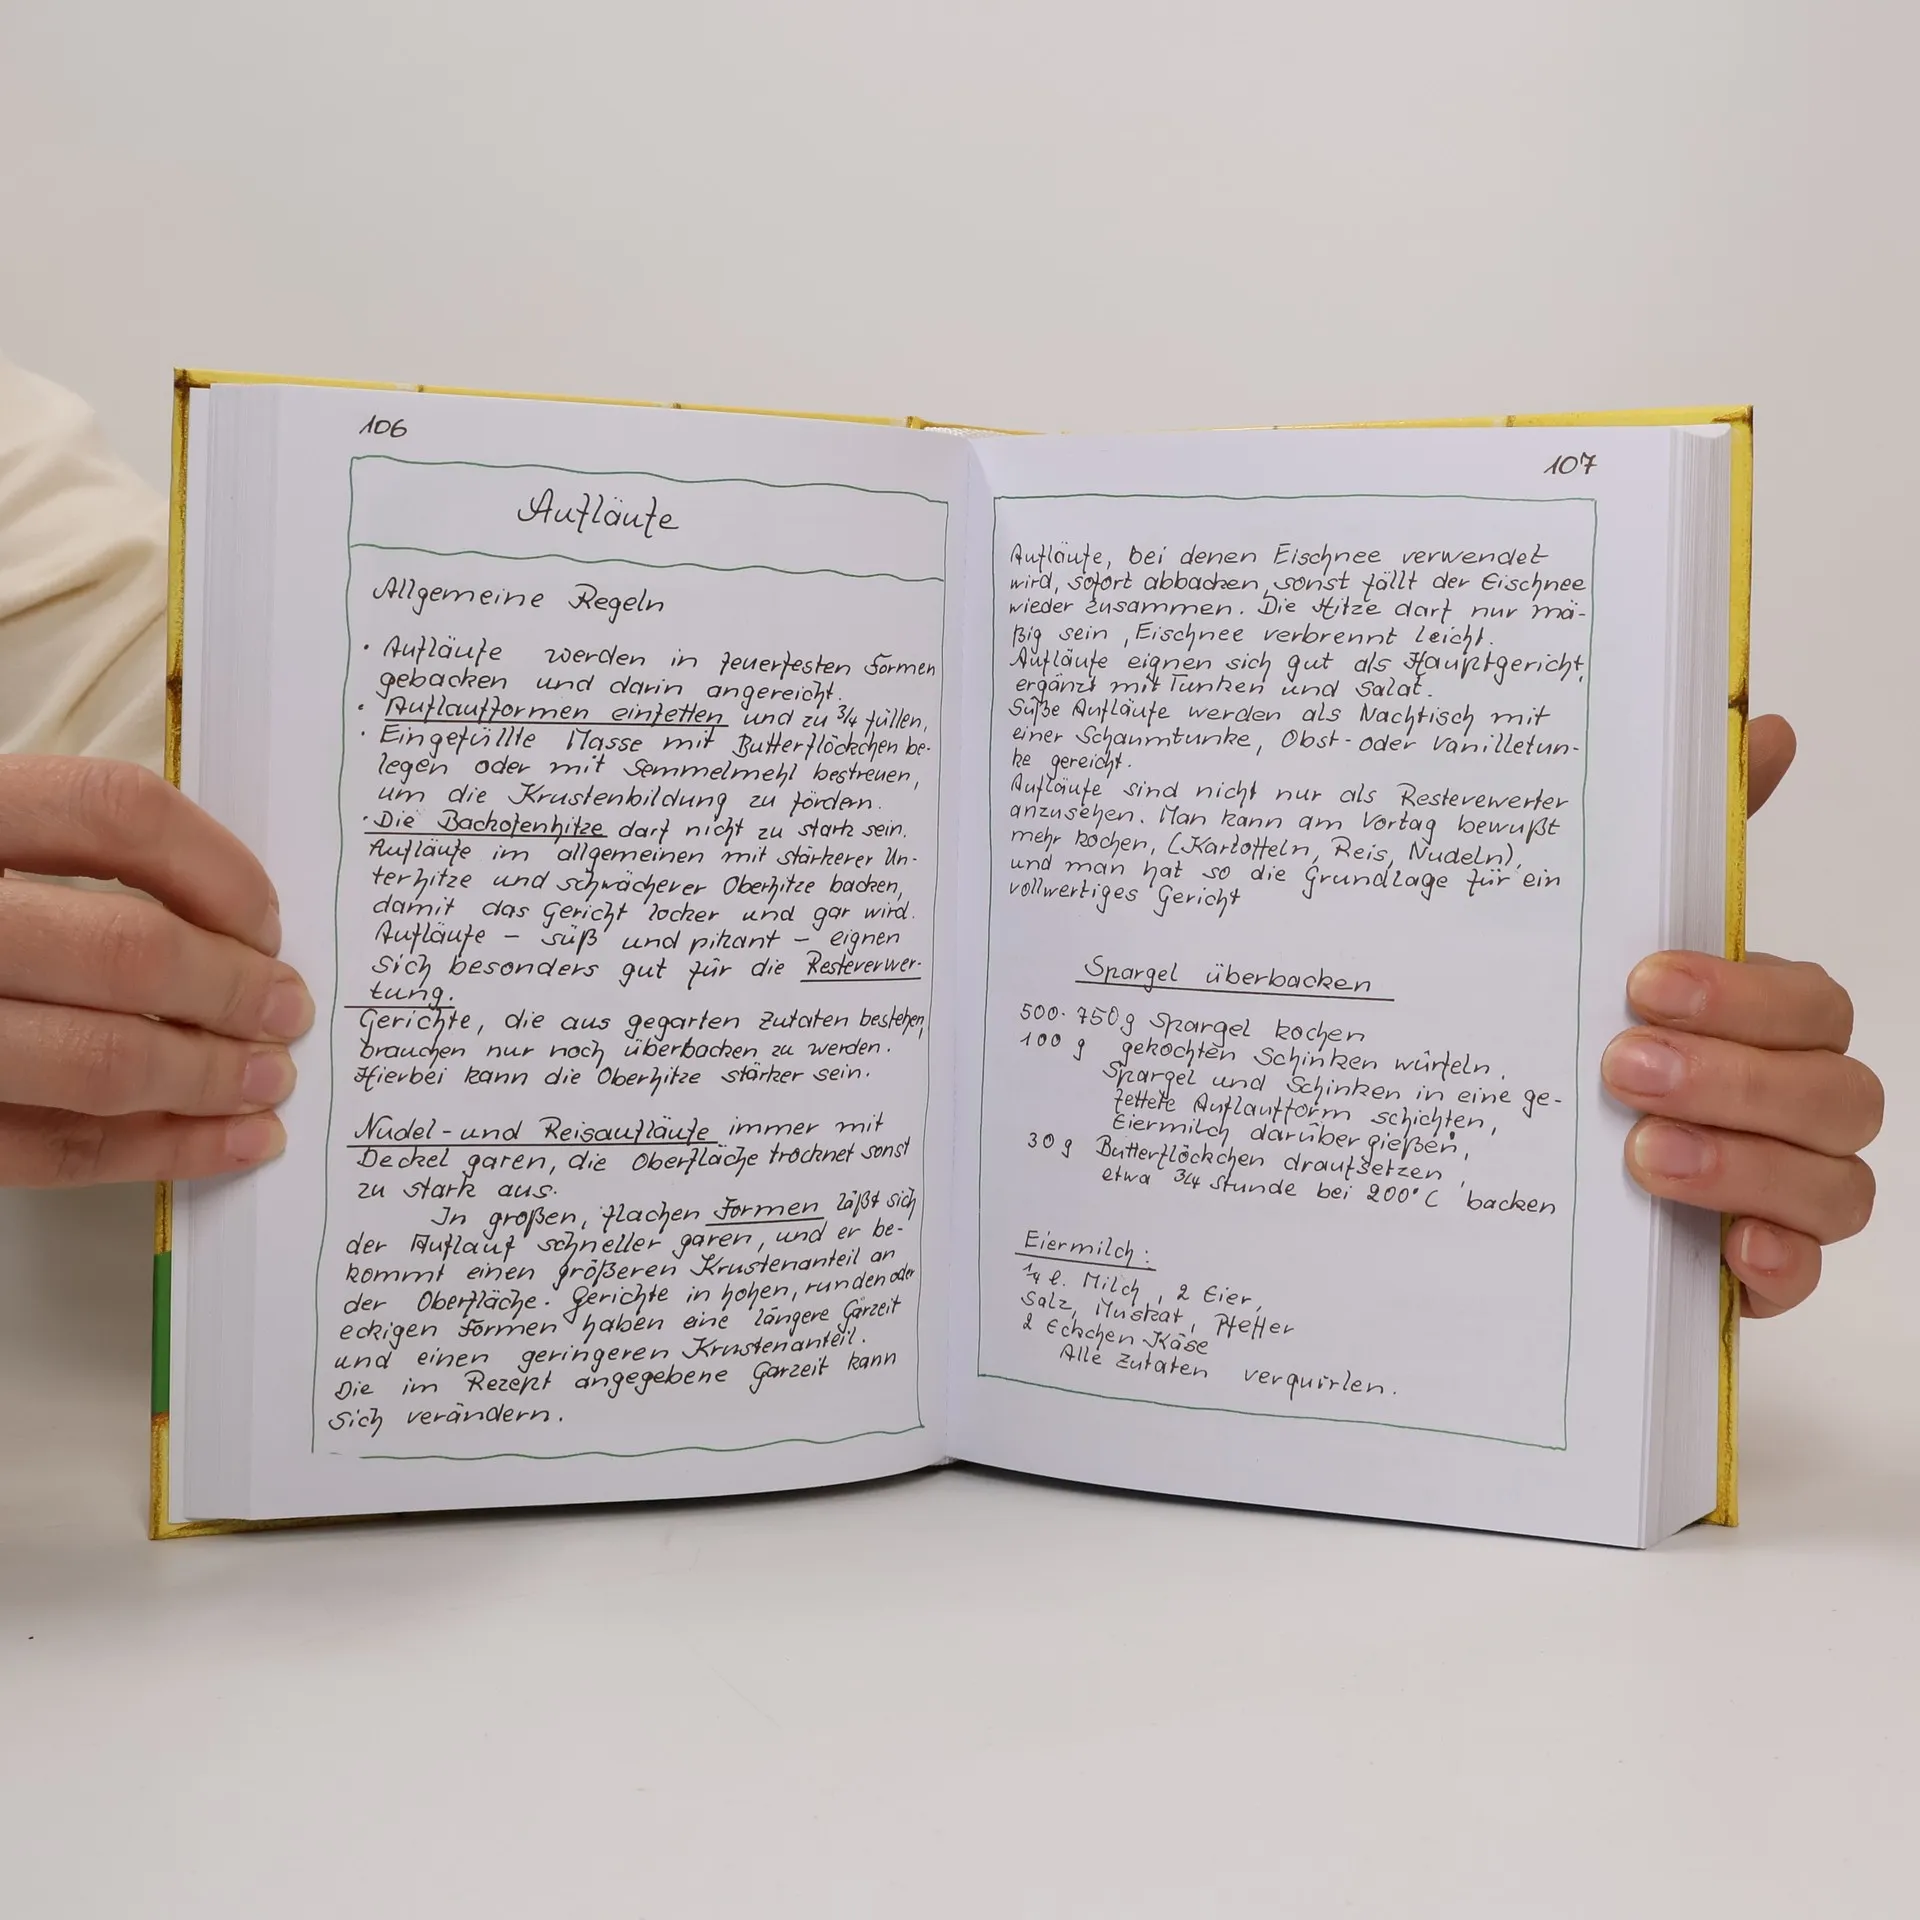 106
Aufläufe
Allgemeine Regeln
· Aufläufe werden in feuerfesten Formen
gebacken und darin angereicht.
· Auflaufformen einfetten und zu 3/4 füllen,
· Eingefüllte Masse mit Butterflöckchen be-
legen oder mit Semmelmehl bestreuen,
um die Krustenbildung zu fördern.
· Die Backofenhitze darf nicht zu stark sein.
Aufläufe im allgemeinen mit stärkerer Un-
terhitze und schwächerer Oberhitze backen,
damit das Gericht locker und gar wird.
Aufläufe – süß und pikant – eignen
sich besonders gut für die Resteverwer-
tung.
Gerichte, die aus gegarten Zutaten bestehen,
brauchen nur noch überbacken zu werden.
Hierbei kann die Oberhitze stärker sein.
Nudel- und Reisaufläufe immer mit
Deckel garen, die Oberfläche trocknet sonst
zu stark aus.
In großen, flachen Formen läßt sich
der Auflauf schneller garen, und er be-
kommt einen größeren Krustenanteil an
der Oberfläche. Gerichte in hohen, runden oder
eckigen Formen haben eine längere Garzeit
und einen geringeren Krustenanteil.
Die im Rezept angegebene Garzeit kann
sich verändern.
107
Aufläufe, bei denen Eischnee verwendet
wird, sofort abbacken, sonst fällt der Eischnee
wieder zusammen. Die Hitze darf nur mä-
ßig sein, Eischnee verbrennt leicht.
Aufläufe eignen sich gut als Hauptgericht,
ergänzt mit Tunken und Salat.
Süße Aufläufe werden als Nachtisch mit
einer Schaumtunke, Obst- oder Vanilletun-
ke gereicht.
Aufläufe sind nicht nur als Resteverwerter
anzusehen. Man kann am Vortag bewußt
mehr kochen, (Kartoffeln, Reis, Nudeln),
und man hat so die Grundlage für ein
vollwertiges Gericht
Spargel überbacken
500-750g Spargel kochen
100 g gekochten Schinken würfeln.
Spargel und Schinken in eine ge-
fettete Auflaufform schichten,
Eiermilch darüber gießen,
30 g Butterflöckchen draufsetzen,
etwa 3/4 Stunde bei 200°C backen
Eiermilch:
1/4 l. Milch, 2 Eier,
Salz, Muskat, Pfeffer
2 Eckchen Käse
Alle Zutaten verquirlen.